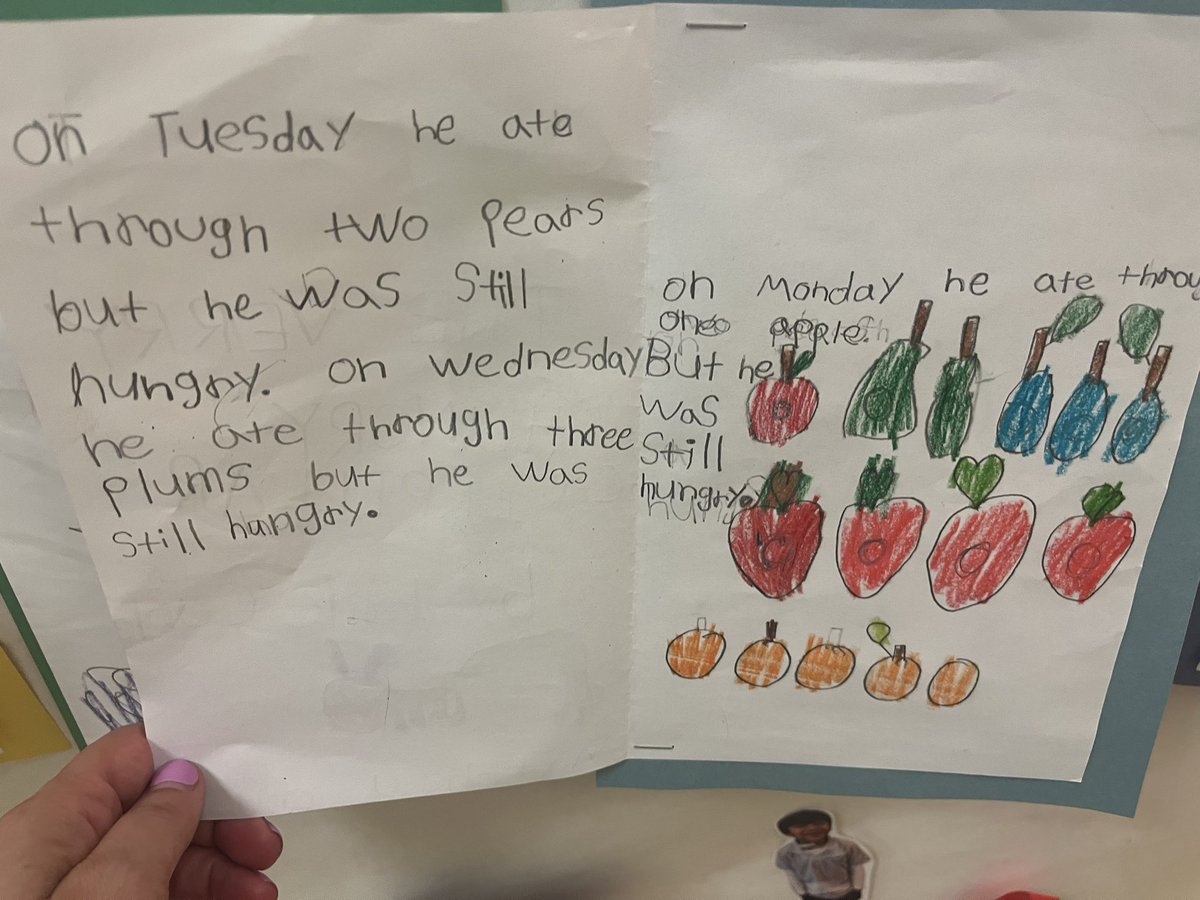 on Tuesday he ate
through two pears
but he was still
hungry. on wednesday
he ate through three
plums but he was
still hungry.
on Monday he ate throu
one apple.
But he
was
still
hungry.